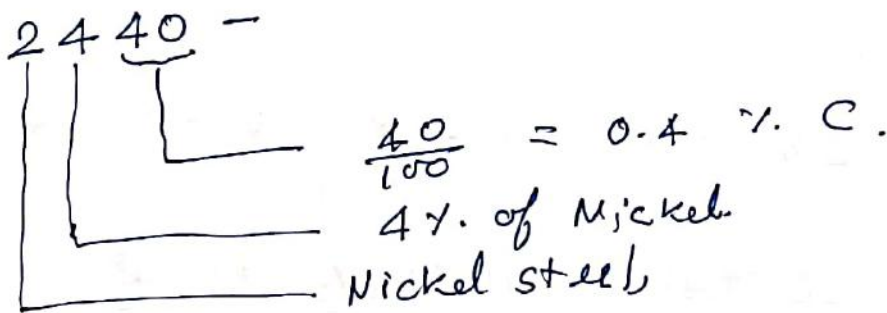 2440 -
40/100 = 0.4 %. C.
4 %. of Nickel.
Nickel steel,